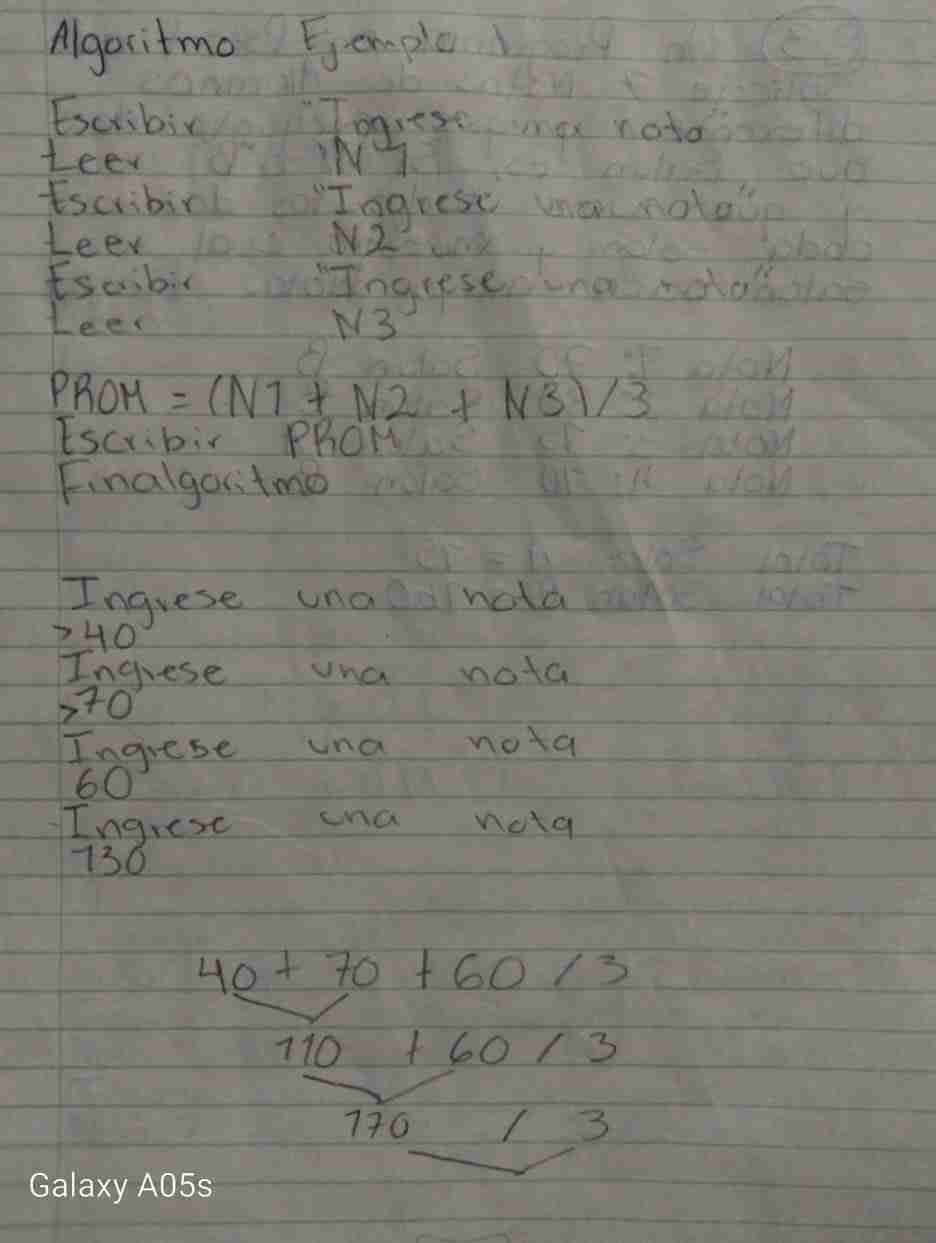 Algoritmo Ejemplo 1
Escribir "Ingrese una nota"
Leer N1
Escribir "Ingrese una nota"
Leer N2
Escribir "Ingrese una nota"
Leer N3
PROM = (N1 + N2 + N3) / 3
Escribir PROM
Finalgoritmo
Ingrese una nota
>40
Ingrese una nota
>70
Ingrese una nota
60
Ingrese una nota
130
40 + 70 + 60 / 3
110 + 60 / 3
170 / 3
Galaxy A05s